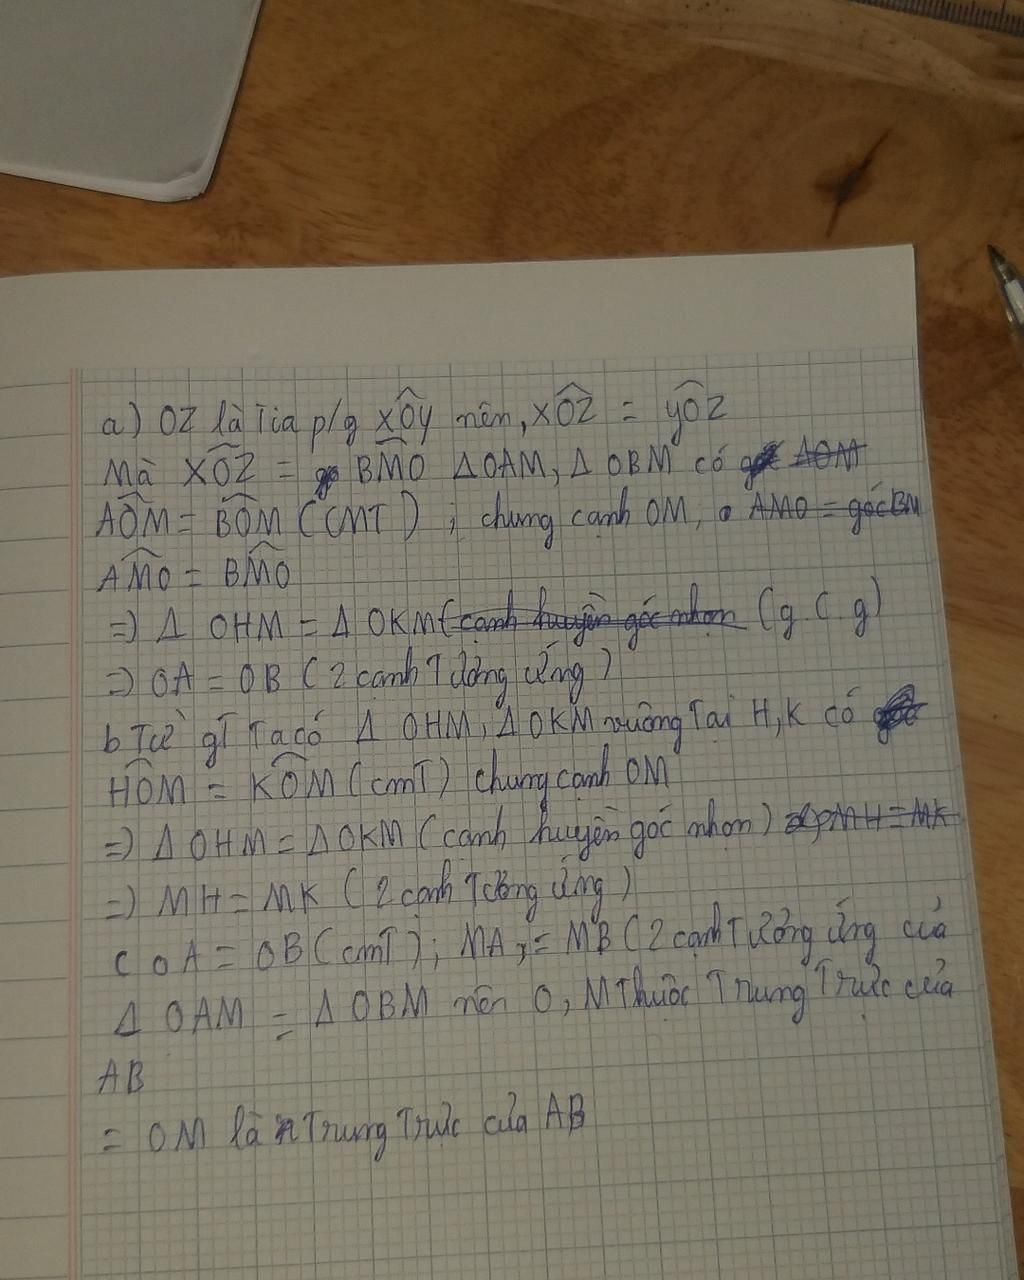 a) OZ là Tia p/g xÔy nên, xÔZ = yÔZ
Mà XÔZ = BM̂O ΔOAM, Δ OBM có AOM
AÔM = BÔM (CMT) ; chung cạnh OM, AMO = gócBM
AM̂O = BM̂O
=> Δ OHM = Δ OKM (cạnh huyền góc nhọn (g.c.g)
=> OA = OB (2 cạnh Tương ứng)
b Từ gT Ta có Δ OHM, Δ OKM vuông Tại H, K có
HÔM = KÔM (cmT) chung cạnh OM
=> Δ OHM = Δ OKM (cạnh huyền góc nhọn) MH = MK
=> MH = MK (2 cạnh Tương ứng)
C OA = OB (cmT); MA, = MB (2 cạnh Tương ứng của
Δ OAM = Δ OBM nên O, M Thuộc Trung Trực của
AB
= OM là Trung Trực của AB